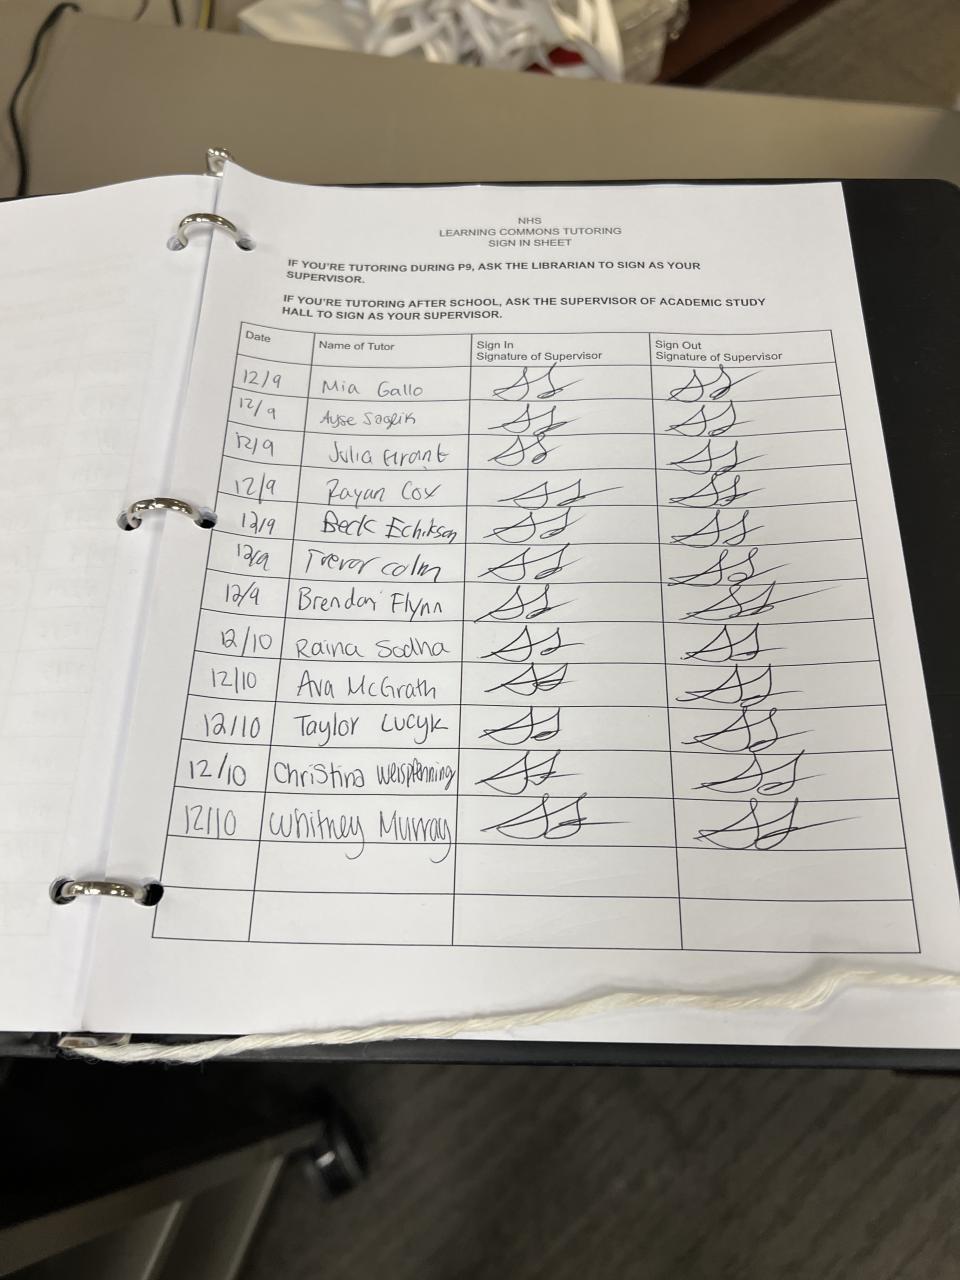 NHS
LEARNING COMMONS TUTORING
SIGN IN SHEET
IF YOU'RE TUTORING DURING P9, ASK THE LIBRARIAN TO SIGN AS YOUR
SUPERVISOR.
IF YOU'RE TUTORING AFTER SCHOOL, ASK THE SUPERVISOR OF ACADEMIC STUDY
HALL TO SIGN AS YOUR SUPERVISOR.
Date Name of Tutor Sign In Sign Out
Signature of Supervisor Signature of Supervisor
12/9 Mia Gallo
12/9 Ayse
12/9 Julia Grant
12/9 Rayan Cox
12/9 Beck Echikson
12/9 Trevor Colm
12/9 Brendan Flynn
12/10 Raina Sodha
12/10 Ava McGrath
12/10 Taylor Lucyk
12/10 Christina Weispfenning
12/10 Whitney Murray